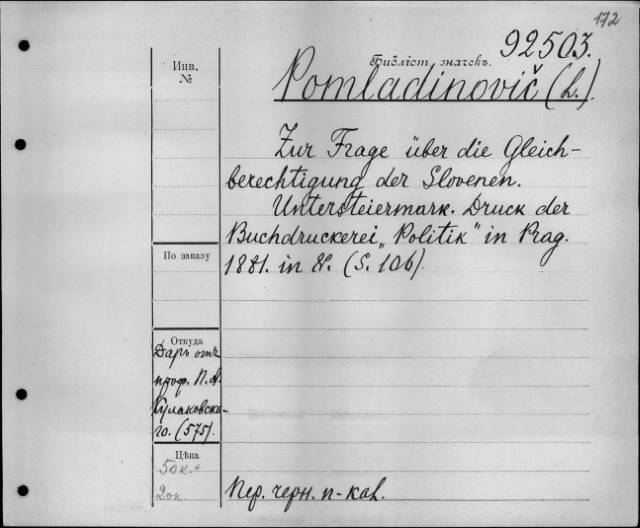 172
92503.
Инв.
№
Библіот. значекъ.
Pomladinovič (L.).
Zur Frage über die Gleich-
berechtigung der Slovenen.
Untersteiermark. Druck der
Buchdruckerei „Politik" in Prag.
1881. in 8°. (S. 106).
По заказу
Откуда
Даръ отъ
проф. П. А.
Кулаковска-
го. (575).
Цѣна
50к. +
20к.
Пер. черн. п-кал.